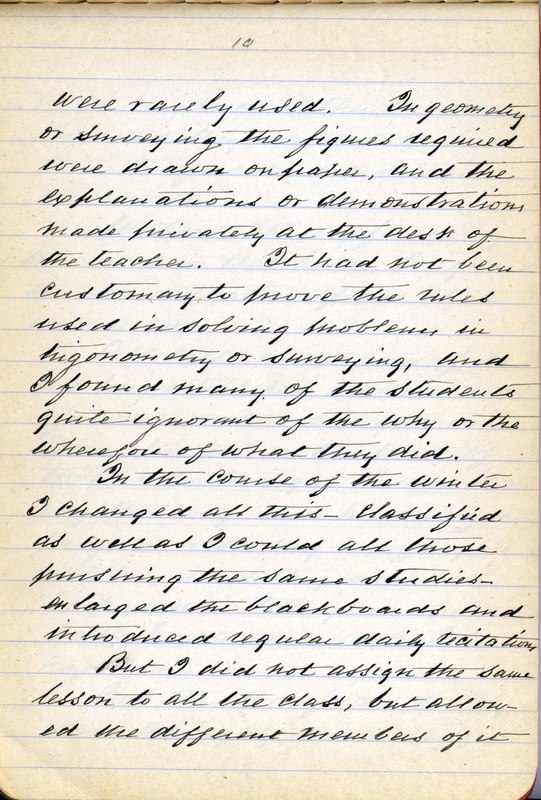 10
were rarely used. In geometry
or surveying the figures required
were drawn on paper, and the
explanations or demonstrations
made privately at the desk of
the teacher. It had not been
customary to prove the rules
used in solving problems in
trigonometry or surveying, and
I found many of the students
quite ignorant of the why or the
wherefore of what they did.
In the course of the winter
I changed all this - classified
as well as I could all those
pursuing the same studies -
enlarged the blackboards and
introduced regular daily recitations
But I did not assign the same
lesson to all the class, but allow-
ed the different members of it